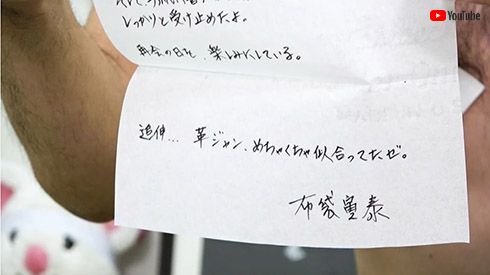 YouTube
しっかりと受け止めたよ。
再会の日を、楽しみにしている。
追伸… 革ジャン、めちゃくちゃ似合ってたぜ。
布袋寅泰